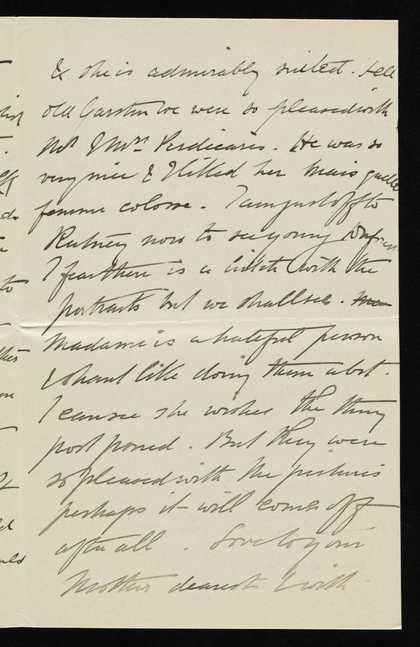 & she is admirably suited. tell
old Garstin we were so pleased with
Mr & Mrs Perdicaris. He was so
very nice & I liked her Mais quelle
femme colosse. I am just off to
Putney now to see young
I fear there is a hitch with the
portraits but we shall see.
Madame is a hateful person
& shant like doing them a bit.
I can see she wishes the thing
postponed. But they were
so pleased with the pictures
perhaps it will come off
after all. Love to your
Mother dearest & with